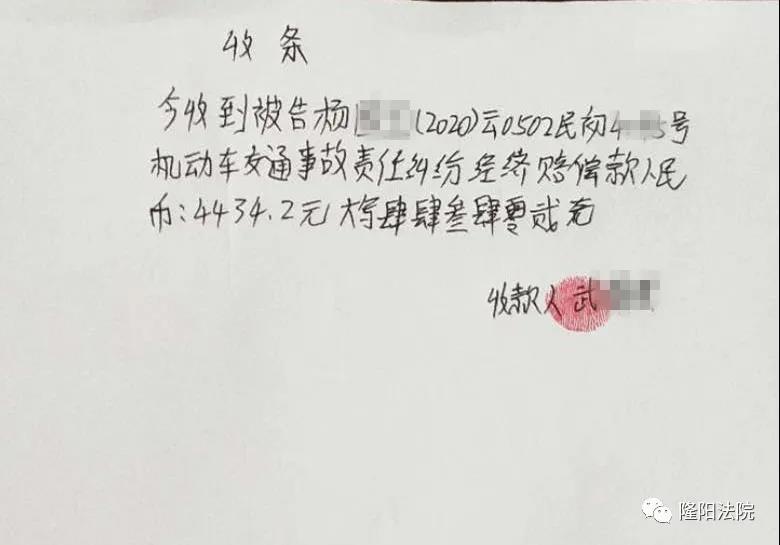 收条
今收到被告杨 (2020)云0502民初4 5号
机动车交通事故责任纠纷经济赔偿款人民
币:4434.2元大写肆肆叁肆零贰元
收款人武
隆阳法院